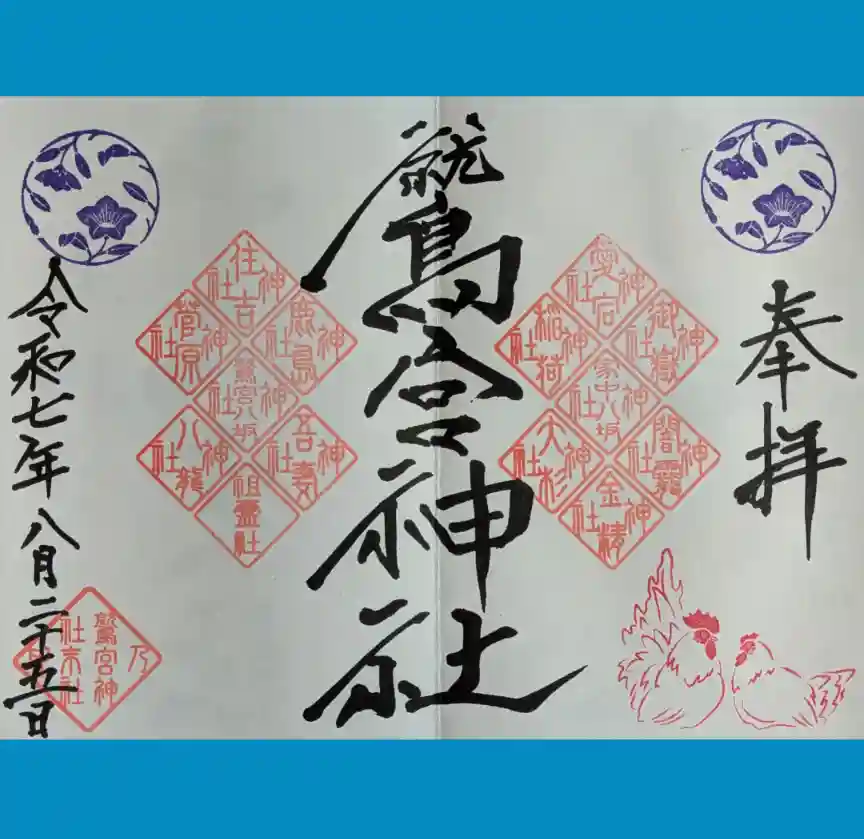 奉拝
愛宕神社
御嶽神社
稲荷神社
家中八坂神社
闇龗神社
大杉神社
金精神社
鷲宮神社
住吉神社
鹿島神社
菅原神社
鷲宮八坂神社
吾妻神社
八龍神社
祖霊社
令和七年八月二十五日
乃
鷲宮神
社末社